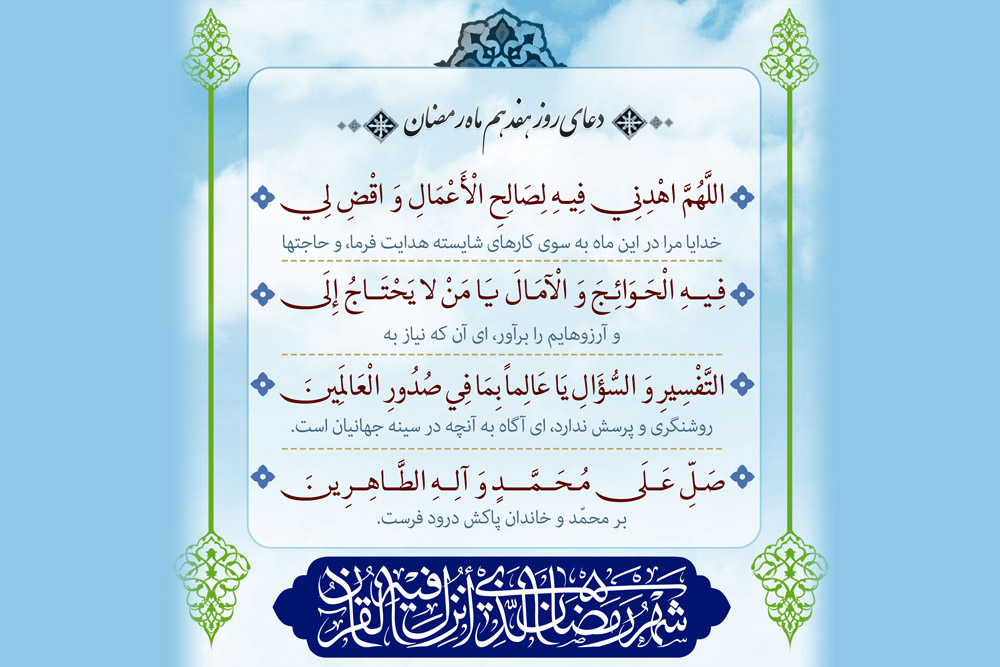 دعای روز هفدهم ماه رمضان
اللَّهُمَّ اهْدِنِي فِيهِ لِصَالِحِ الْأَعْمَالِ وَ اقْضِ لِي
خدایا مرا در این ماه به سوی کارهای شایسته هدایت فرما، و حاجتها
فِيهِ الْحَوَائِجَ وَ الْآمَالَ يَا مَنْ لا يَحْتَاجُ إِلَى
و آرزوهایم را برآور، ای آن که نیاز به
التَّفْسِيرِ وَ السُّؤَالِ يَا عَالِماً بِمَا فِي صُدُورِ الْعَالَمِينَ
روشنگری و پرسش ندارد، ای آگاه به آنچه در سینه جهانیان است.
صَلِّ عَلَى مُحَمَّدٍ وَ آلِهِ الطَّاهِرِينَ
بر محمّد و خاندان پاکش درود فرست.
شَهْرُ رَمَضَانَ الَّذِي أُنْزِلَ فِيهِ الْقُرْآنُ